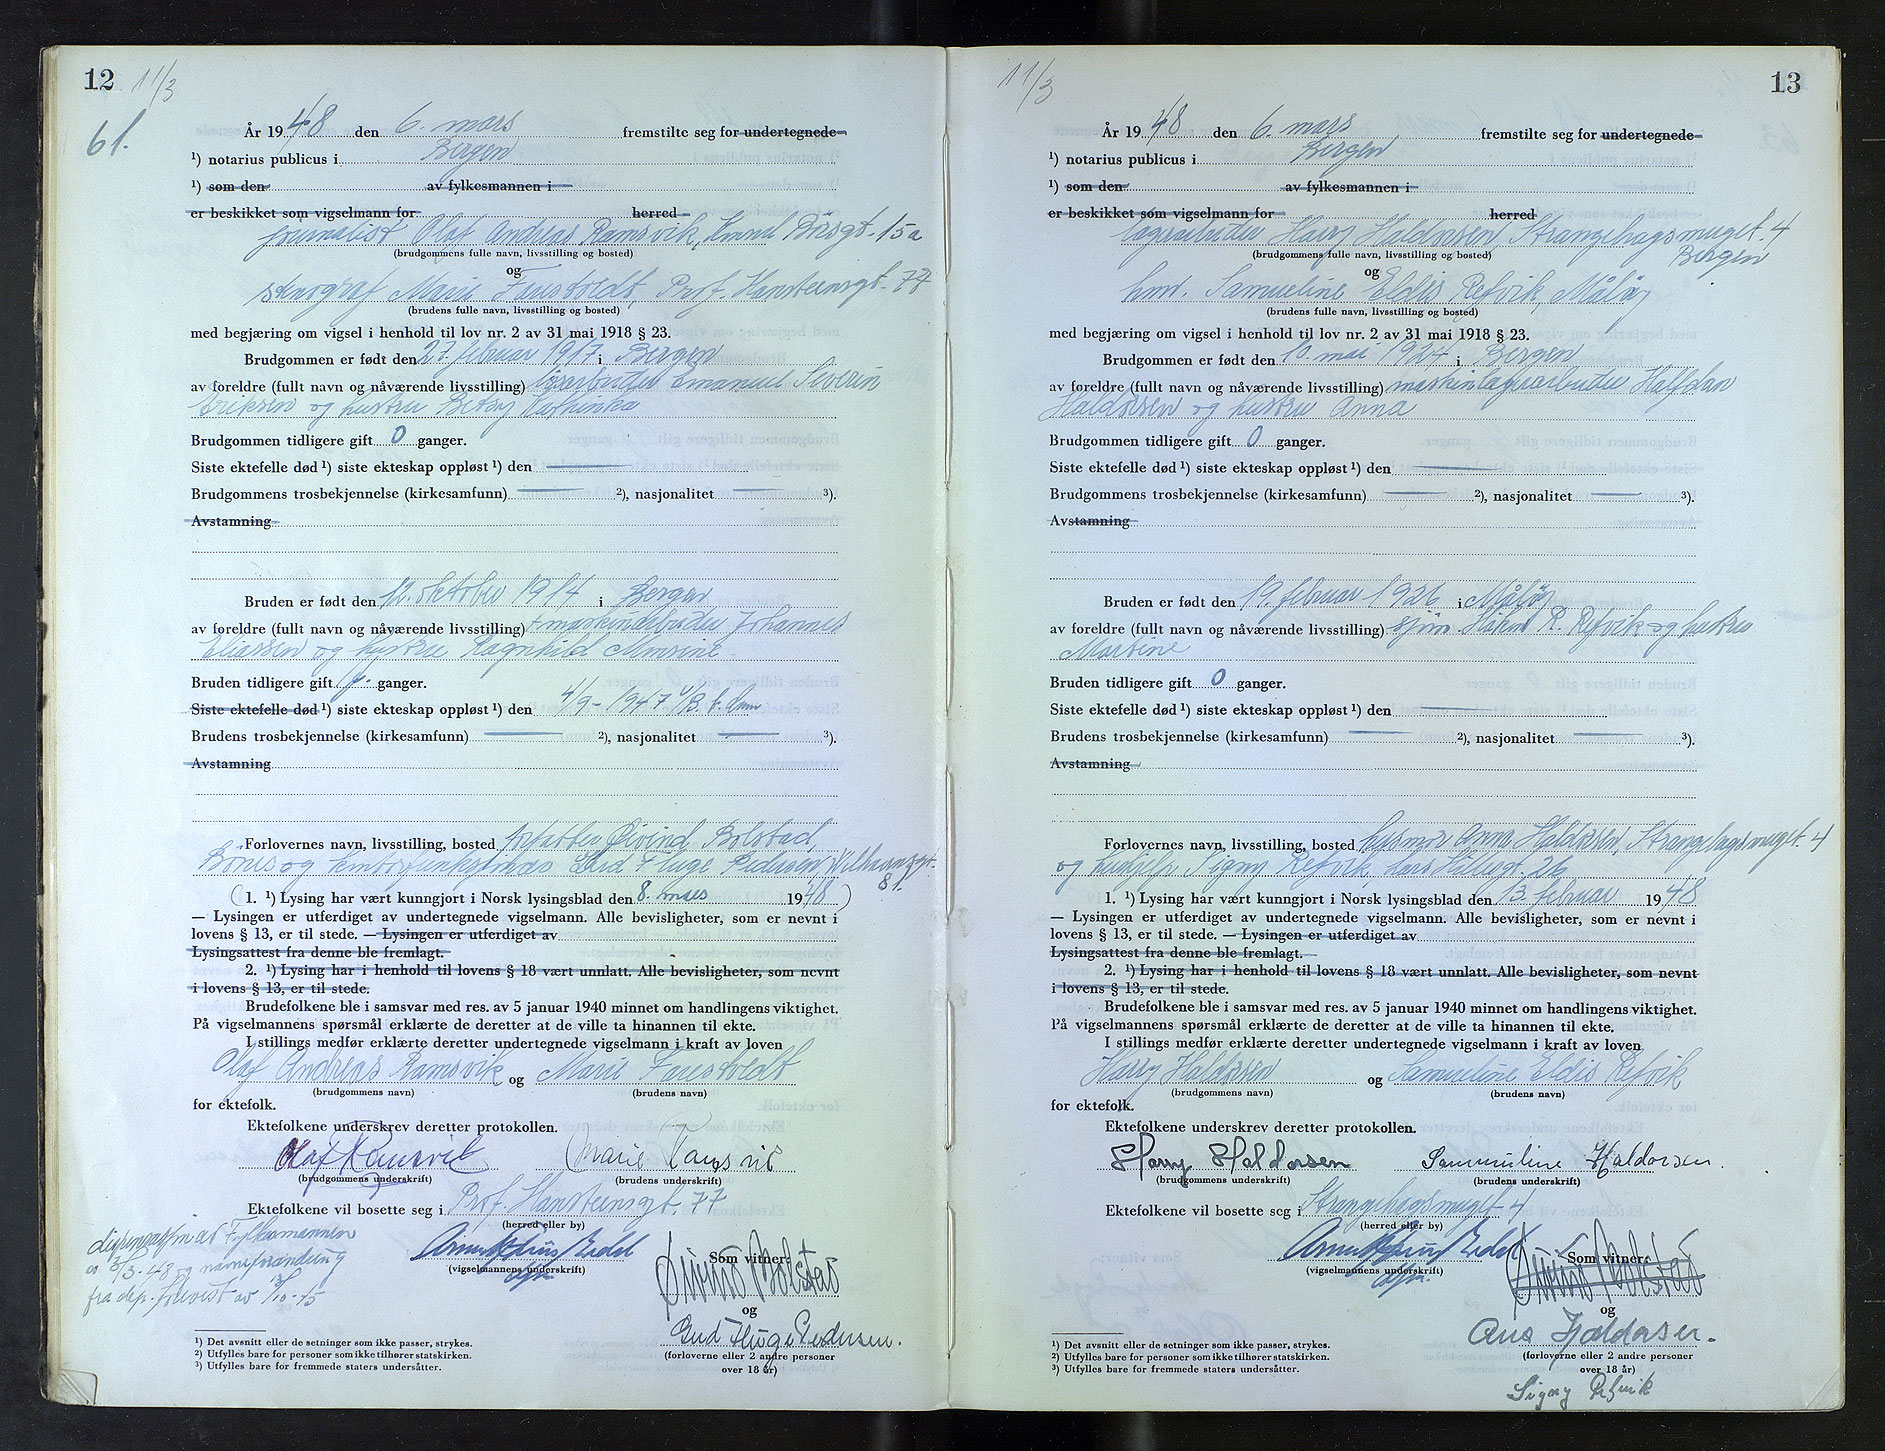 12 11/3
61.
År 1948 den 6. mars fremstilte seg for undertegnede
¹) notarius publicus i Bergen
¹) som den av fylkesmannen i
er beskikket som vigselmann for herred
journalist Olaf Andreas Ramsvik, 15a
(brudgommens fulle navn, livsstilling og bosted)
og
stenograf Marie Prof. Hansteensgt. 77
(brudens fulle navn, livsstilling og bosted)
med begjæring om vigsel i henhold til lov nr. 2 av 31 mai 1918 § 23.
Brudgommen er født den 27. februar 1917 i Bergen
av foreldre (fullt navn og nåværende livsstilling) Emanuel Severin
Eriksen og hustru Betsy
Brudgommen tidligere gift 0 ganger.
Siste ektefelle død ¹) siste ekteskap oppløst ¹) den
Brudgommens trosbekjennelse (kirkesamfunn) ²), nasjonalitet ³).
Avstamning
Bruden er født den 12. oktober 1914 i Bergen
av foreldre (fullt navn og nåværende livsstilling) maskinarbeider Johannes
Eliassen og hustru Ragnhild
Bruden tidligere gift ganger.
Siste ektefelle død ¹) siste ekteskap oppløst ¹) den 4/9-1947
Brudens trosbekjennelse (kirkesamfunn) ²), nasjonalitet ³).
Avstamning
Forlovernes navn, livsstilling, bosted Øivind Bolstad,
Bønes og Huge Pedersen
81.
(1. ¹) Lysing har vært kunngjort i Norsk lysingsblad den 8. mars 1948)
— Lysingen er utferdiget av undertegnede vigselmann. Alle bevisligheter, som er nevnt i
lovens § 13, er til stede. — Lysingen er utferdiget av
Lysingsattest fra denne ble fremlagt.
2. ¹) Lysing har i henhold til lovens § 18 vært unnlatt. Alle bevisligheter, som nevnt
i lovens § 13, er til stede.
Brudefolkene ble i samsvar med res. av 5 januar 1940 minnet om handlingens viktighet.
På vigselmannens spørsmål erklærte de deretter at de ville ta hinannen til ekte.
I stillings medfør erklærte deretter undertegnede vigselmann i kraft av loven
Olaf Andreas Ramsvik og Marie
(brudgommens navn) (brudens navn)
for ektefolk.
Ektefolkene underskrev deretter protokollen.
Olaf Ramsvik Marie Ramsvik
(brudgommens underskrift) (brudens underskrift)
Ektefolkene vil bosette seg i Prof. Hansteensgt. 77
(herred eller by)
dispensasjon av Fylkesmannen
av 5/3-48 og navneforandring
fra dep.
(vigselmannens underskrift)
Som vitner:
Øivind Bolstad
og
Huge Pedersen.
(forloverne eller 2 andre personer
over 18 år)
¹) Det avsnitt eller de setninger som ikke passer, strykes.
²) Utfylles bare for personer som ikke tilhører statskirken.
³) Utfylles bare for fremmede staters undersåtter.
11/3 13
År 1948 den 6. mars fremstilte seg for undertegnede
¹) notarius publicus i Bergen
¹) som den av fylkesmannen i
er beskikket som vigselmann for herred
lagerarbeider Harry Haldorsen, Strangehagsmuget. 4
Bergen
(brudgommens fulle navn, livsstilling og bosted)
og
Samueline Eldis Refvik, Måløy
(brudens fulle navn, livsstilling og bosted)
med begjæring om vigsel i henhold til lov nr. 2 av 31 mai 1918 § 23.
Brudgommen er født den 10. mai 1924 i Bergen
av foreldre (fullt navn og nåværende livsstilling) Halfdan
Haldorsen og hustru Anna
Brudgommen tidligere gift 0 ganger.
Siste ektefelle død ¹) siste ekteskap oppløst ¹) den
Brudgommens trosbekjennelse (kirkesamfunn) ²), nasjonalitet ³).
Avstamning
Bruden er født den 19. februar 1926 i Måløy
av foreldre (fullt navn og nåværende livsstilling) R. Refvik og hustru
Martine
Bruden tidligere gift 0 ganger.
Siste ektefelle død ¹) siste ekteskap oppløst ¹) den
Brudens trosbekjennelse (kirkesamfunn) ²), nasjonalitet ³).
Avstamning
Forlovernes navn, livsstilling, bosted husmor Anna Haldorsen, Strangehagsmuget. 4
og hushjelp Signy Refvik, Lars Hillesgt. 26
1. ¹) Lysing har vært kunngjort i Norsk lysingsblad den 13. februar 1948
— Lysingen er utferdiget av undertegnede vigselmann. Alle bevisligheter, som er nevnt i
lovens § 13, er til stede. — Lysingen er utferdiget av
Lysingsattest fra denne ble fremlagt.
2. ¹) Lysing har i henhold til lovens § 18 vært unnlatt. Alle bevisligheter, som nevnt
i lovens § 13, er til stede.
Brudefolkene ble i samsvar med res. av 5 januar 1940 minnet om handlingens viktighet.
På vigselmannens spørsmål erklærte de deretter at de ville ta hinannen til ekte.
I stillings medfør erklærte deretter undertegnede vigselmann i kraft av loven
Harry Haldorsen og Samueline Eldis Refvik
(brudgommens navn) (brudens navn)
for ektefolk.
Ektefolkene underskrev deretter protokollen.
Harry Haldorsen Sammuline Haldorsen.
(brudgommens underskrift) (brudens underskrift)
Ektefolkene vil bosette seg i Strangehagsmuget 4
(herred eller by)
(vigselmannens underskrift)
Som vitner:
Øivind Bolstad
og
Haldorsen.
(forloverne eller 2 andre personer
over 18 år)
Signy Refvik
¹) Det avsnitt eller de setninger som ikke passer, strykes.
²) Utfylles bare for personer som ikke tilhører statskirken.
³) Utfylles bare for fremmede staters undersåtter.